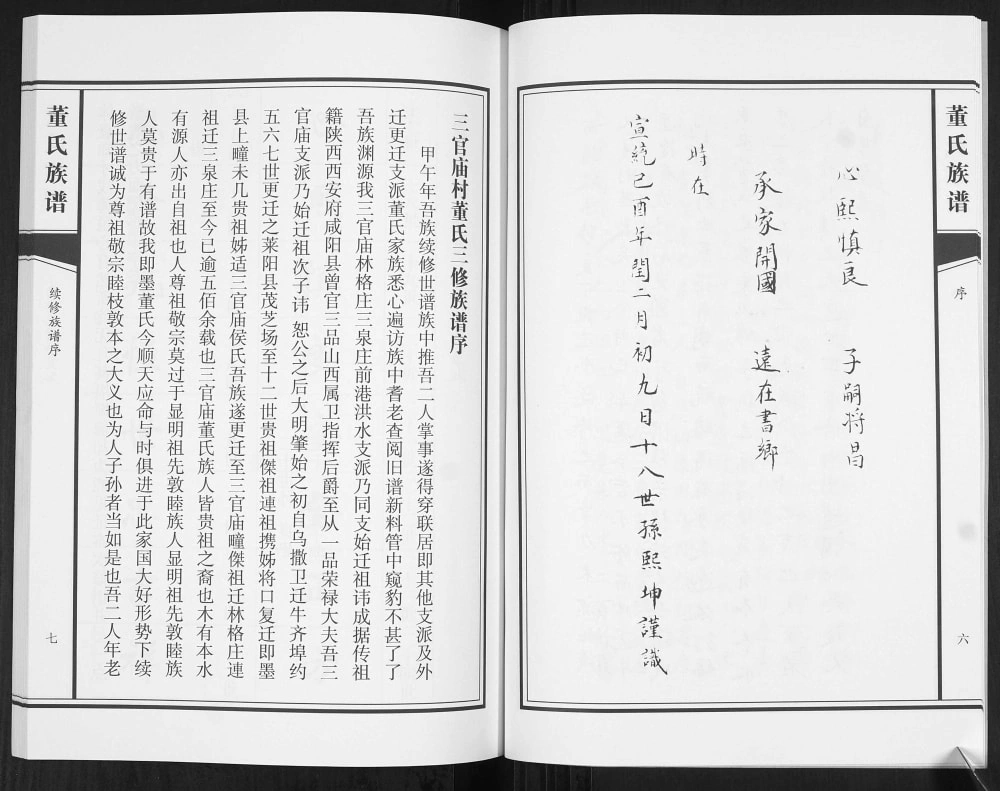 董氏族谱
序
六
心熙慎良 子嗣将昌
承家開國 遠在書鄉
時在
宣統己酉年閏二月初九日十八世孫熙坤謹識
三官庙村董氏三修族谱序
甲午年吾族续修世谱族中推吾二人掌事遂得穿联居即其他支派及外
迁更迁支派董氏家族悉心遍访族中耆老查阅旧谱新料管中窥豹不甚了了
吾族渊源我三官庙林格庄三泉庄前港洪水支派乃同支始迁祖讳成据传祖
籍陕西西安府咸阳县曾官三品山西属卫指挥后爵至从一品荣禄大夫吾三
官庙支派乃始迁祖次子讳 恕公之后大明肇始之初自乌撒卫迁牛齐埠约
五六七世更迁之莱阳县茂芝场至十二世贵祖傑祖連祖携姊将口复迁即墨
县上疃未几贵祖姊适三官庙侯氏吾族遂更迁至三官庙疃傑祖迁林格庄連
祖迁三泉庄至今已逾五佰余载也三官庙董氏族人皆贵祖之裔也木有本水
有源人亦出自祖也人尊祖敬宗莫过于显明祖先敦睦族人显明祖先敦睦族
人莫贵于有谱故我即墨董氏今顺天应命与时俱进于此家国大好形势下续
修世谱诚为尊祖敬宗睦枝敦本之大义也为人子孙者当如是也吾二人年老
董氏族谱
续修族谱序
七